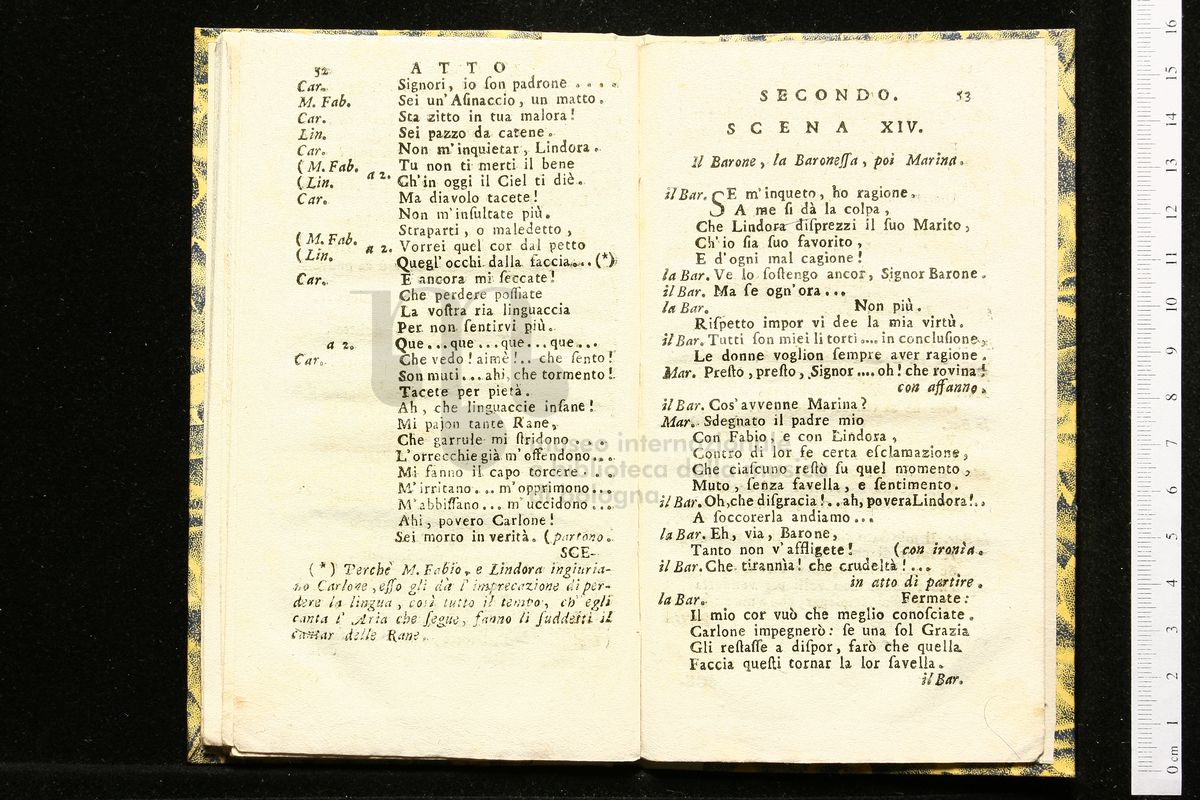 52 ATTO
Car. Signori, io ſon padrone . . . .
M. Fab. Sei un'Aſinaccio, un matto.
Car. Sta zitto in tua malora!
Lin. Sei pazzo da catene.
Car. Non m'inquietar, Lindora.
(M. Fab. Tu non ti merti il bene
(Lin. a 2. Ch'in oggi il Ciel ti diè.
Car. Ma diavolo tacete!
Non m'inſultate più.
Straparti, o maledetto,
(M. Fab.
(Lin. a 2. Vorrei quel cor dal petto
Quegl'occhi dalla faccia... (*)
Car. E ancora mi ſeccate!
Che perdere poſſiate
La voſtra ria linguaccia
Per non ſentirvi più.
a 2. Que...que...que...que...
Car. Che vedo! aimè!.. che ſento!
Son muti...ahi, che tormento!
Tacete per pietà.
Ah, che linguaccie inſane!
Mi pajon tante Rane,
Che garrule mi ſtridono....
L'orrecchie già m'offendono...
Mi fanno il capo torcere....
M'irritano...m'opprimono...
M'abbiſſano...m'uccidono...
Ahi, povero Carlone!
Sei morto in verità. (partono.
SCE-
(*) Perchè M. Fabio, e Lindora ingiuria-
no Carlone, eſſo gli dà l'imprecazione di per-
dere la lingua, così tutto il tempo, ch'egli
canta l'Aria che ſegue, fanno li ſuddetti il
Cantar delle Rane.
SECONDO. 53
SCENA XIV.
il Barone, la Baroneſſa, poi Marina.
il Bar. SE m'inqueto, ho ragione.
A me ſi dà la colpa,
Che Lindora diſprezzi il ſuo Marito,
Ch'io ſia ſuo favorito,
E d'ogni mal cagione!
la Bar. Ve lo ſoſtengo ancor, Signor Barone.
il Bar. Ma ſe ogn'ora...
la Bar. Non più.
Riſpetto impor vi dee la mia virtù.
il Bar. Tutti ſon miei li torti.... in concluſione,
Le donne voglion ſempre aver ragione.
Mar. Preſto, preſto, Signor....oh! che rovina!
con affanno.
il Bar. Cos'avvenne Marina?
Mar. Sdegnato il padre mio
Con Fabio, e con Lindora,
Contro di lor fe certa eſclamazione,
Che ciaſcuno reſtò ſu quel momento,
Muto, ſenza favella, e ſentimento.
il Bar. Oh, che diſgracia!..ah, povera Lindora!..
A ſoccorerla andiamo...
la Bar. Eh, via, Barone,
Tanto non v'affligete! (con ironìa.
il Bar. Che tirannìa! che crudeltà!...
in atto di partire.
la Bar. Fermate:
Il mio cor vuò che meglio conoſciate.
Carlone impegnerò: ſe una ſol Grazia
Gli reſtaſſe a diſpor, farò che quella
Faccia queſti tornar la lor favella.
il Bar.
museo internazionale
biblioteca della musica
bologna
0 cm 1 2 3 4 5 6 7 8 9 10 11 12 13 14 15 16